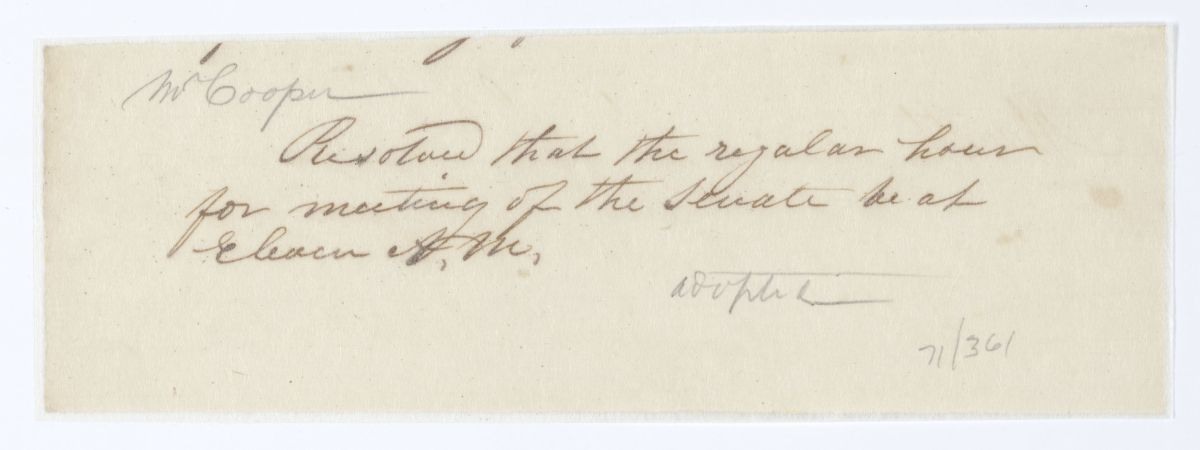 Mr Cooper
Resolved that the regular hour
for meeting of the Senate be at
Eleven A, M,
adopted
71/361